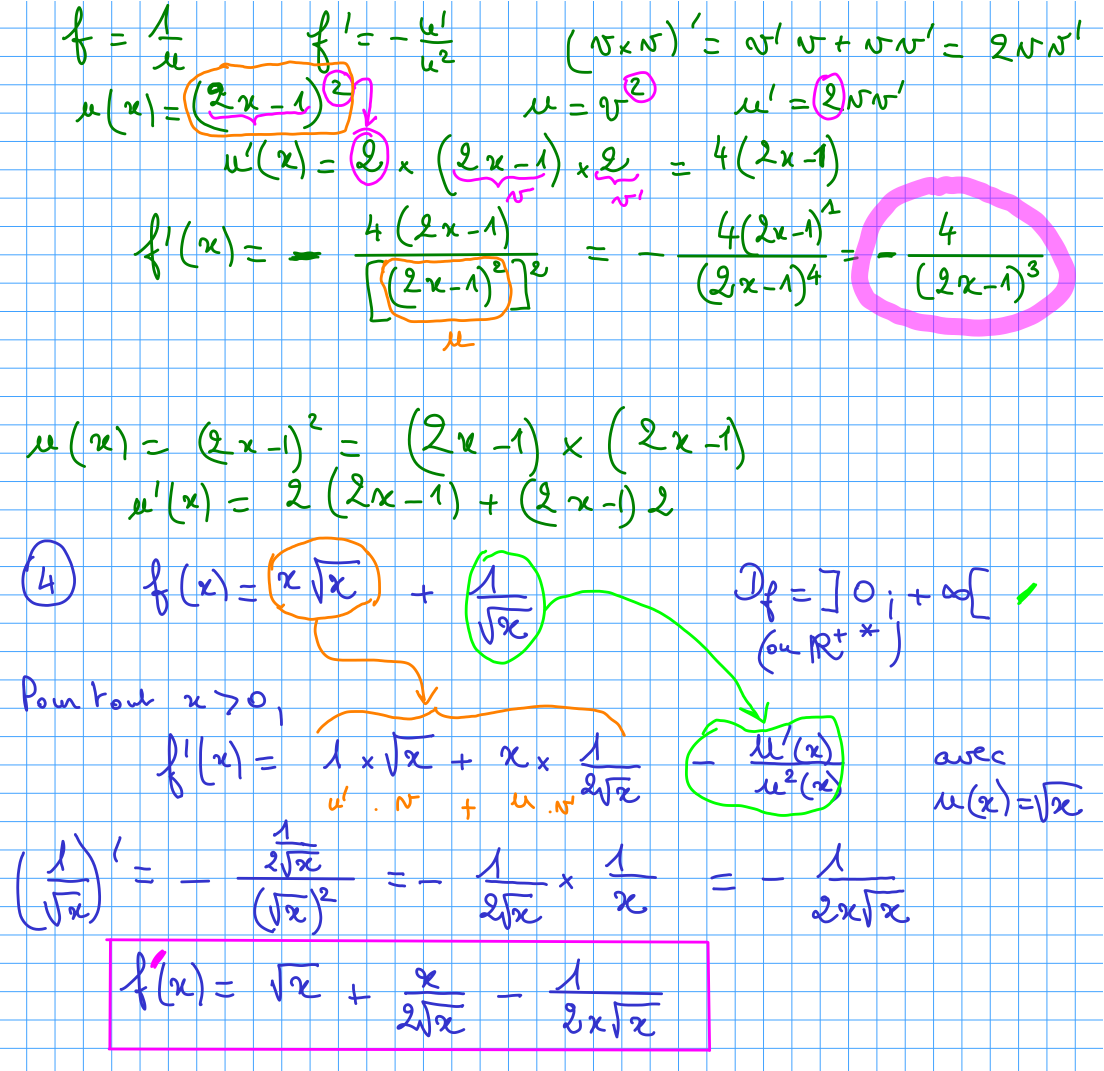 f = 1/u    f' = - u'/u²    (v×v)' = v'v + vv' = 2vv'
u(x) = (2x-1)²    u = v²    u' = 2vv'
u'(x) = 2 × (2x-1) × 2 = 4(2x-1)
v    v'
f'(x) = - 4(2x-1)/[(2x-1)²]² = - 4(2x-1)¹/(2x-1)⁴ = - 4/(2x-1)³
u
u(x) = (2x-1)² = (2x-1) × (2x-1)
u'(x) = 2(2x-1) + (2x-1)2
4    f(x) = x√x + 1/√x    Df = ]0; +∞[
(ou ℝ⁺*)
Pour tout x > 0,
f'(x) = 1 × √x + x × 1/(2√x) - u'(x)/u²(x)    avec
u'.v + u.v'    u(x) = √x
(1/√x)' = - (1/(2√x))/(√x)² = - 1/(2√x) × 1/x = - 1/(2x√x)
f'(x) = √x + x/(2√x) - 1/(2x√x)